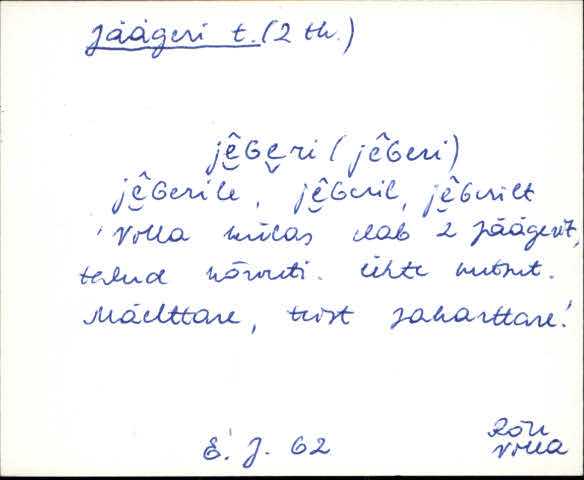 Jäägeri t. (2 th.)
jê̬Ge̬ri (jêGeri)
jê̬Gerile, jê̬Geril, jê̬Gerilt
'Võlla külas elab 2 Jäägerit,
talud kõrvuti. ühte kutsut.
Mäelttare, teist Jakarttare.'
E. J. 62
Rõu
Võlla